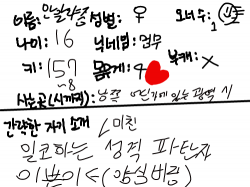 이름: 인실직좆 성별: ♀ 오너수: 1
나이: 16 닉네임: 엄무
키: 157~8 몸무게: 4 복캐: X
사는곳(시까지): 남쪽 어딘가에 있는 광역시
간략한 자기소개 (미친
일코하는 성격 파탄자
이쁘이< (양심버리